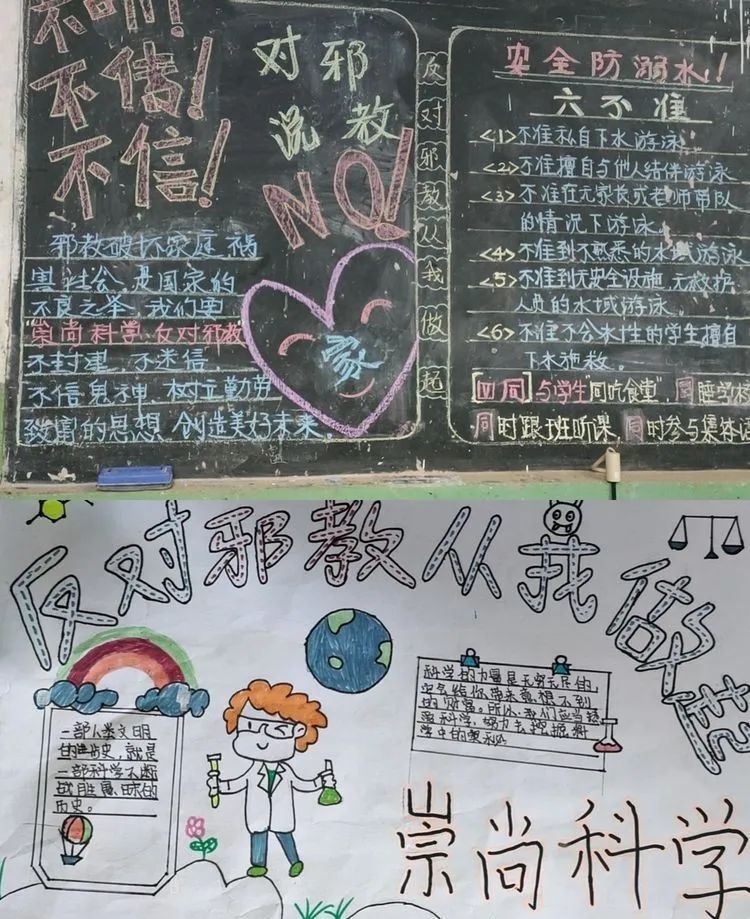 不听!
不传!
不信!
对邪
说教
NO!
邪教破坏家庭祸
害社会,是国家的
不良之条,我们要
崇尚科学、反对邪教
不封建,不迷信,
不信鬼神,树立勤劳
致富的思想,创造美好未来。
家
反对邪教从我做起
安全防溺水!!
六不准
<1>不准私自下水游泳
<2>不准擅自与他人结伴游泳
<3>不准在无家长或老师带队
的情况下游泳。
<4>不准到不熟悉的水域游泳
<5>不准到无安全设施,无救护
人员的水域游泳。
<6>不准不会水性的学生擅自
下水施救。
[四同]与学生同吃食堂,同睡学校
同时跟班听课,同时参与集体活
反对邪教从我做起
一部人类文明
的进步史,就是
一部科学不断
战胜愚昧的
历史。
科学的力量是无穷无尽的,
它会给你带来意想不到
的财富。所以,我们应当轻
努力去挖掘科
学中的奥秘。
崇尚科学